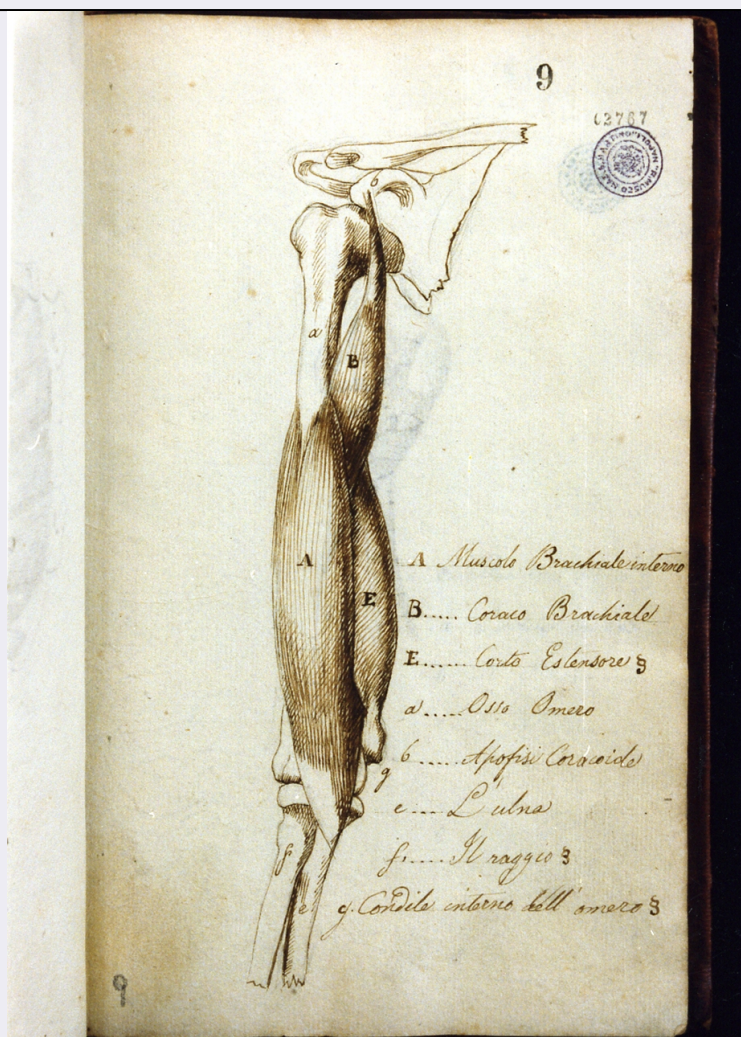 9
62767
b
a
B
A
E
A Muscolo Brachiale interno
B..... Coraco Brachiale
E...... Corto Estensore §
a..... Osso Omero
b..... Apofisi Coracoide
g
e.... L'ulna
f..... Il raggio §
f
e
g. Condile interno dell' omero §
9